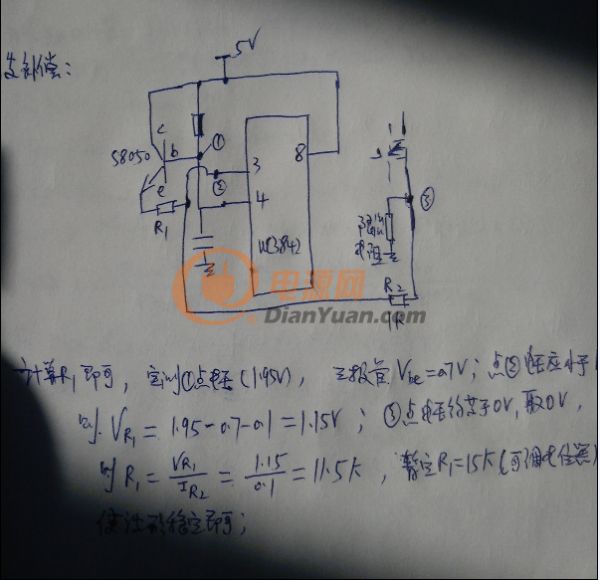 补偿：
5V
c
①
S8050
b
3
8
②
e
4
③
R1
UC3842
电阻
R2
1K
电源网
DianYuan.com
计算R1即可，实测①点电压(1.95V)，三极管Vbe=0.7V；点②电压应小于1
则 VR1 = 1.95-0.7-0.1 = 1.15V；③点电压约等于0V，取0V，
则 R1 = VR1/IR2 = 1.15/0.1 = 11.5K，暂定R1=15K(可调电位器)
使波形稳定即可；